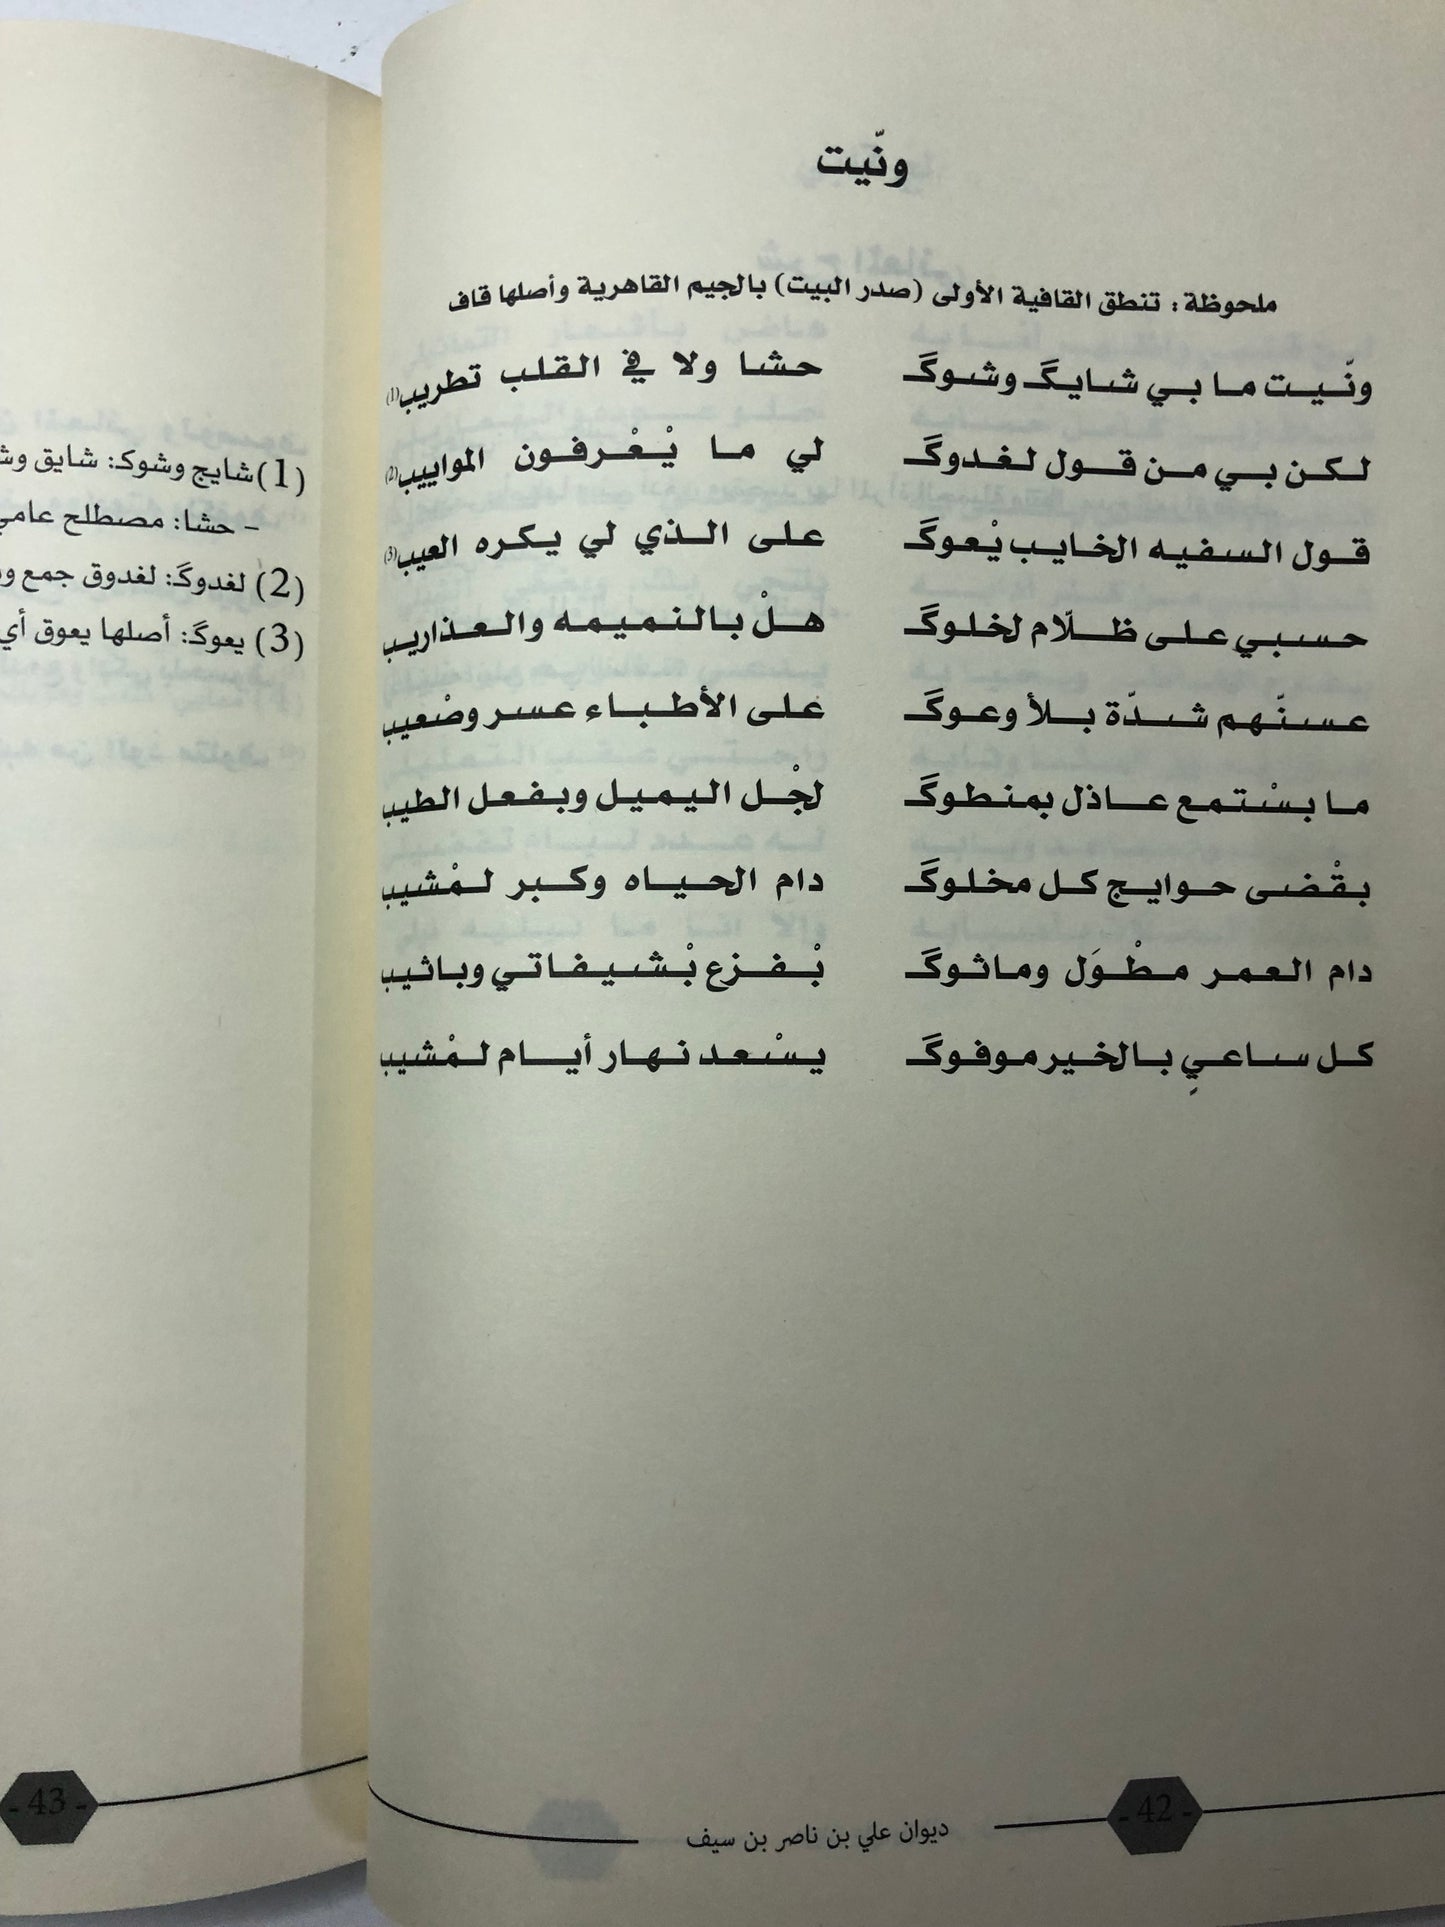 ونّيت
ملحوظة: تنطق القافية الأولى (صدر البيت) بالجيم القاهرية وأصلها قاف
ونّيت ما بي شايگ وشوگ حشا ولا في القلب تطريب(1)
لكن بي من قول لغدوگ لي ما يْعْرفون المواييب(2)
قول السفيه الخايب يْعوگ على الذي لي يكره العيب(3)
حسبي على ظلّام لخلوگ هلْ بالنميمه والعذاريب
عسنّهم شدّة بلأ وعوگ على الأطباء عسر وصْعيب
ما بسْتمع عاذل بمنطوگ لجْل اليميل وبفعل الطيب
بقْضى حوايج كل مخلوگ دام الحياه وكبر لمْشيب
دام العمر مطْوَل وماثوگ بْفزع بْشيفاتي وباثيب
كل ساعيٍ بالخير موفوگ يسْعد نهار أيام لمْشيب
ديوان علي بن ناصر بن سيف
- 42 -
(1) شايج وشوك: شايق
- حشا: مصطلح عامي
(2) لغدوگ: لغدوق جمع
(3) يعوگ: أصلها يعوق أي
- 43 -